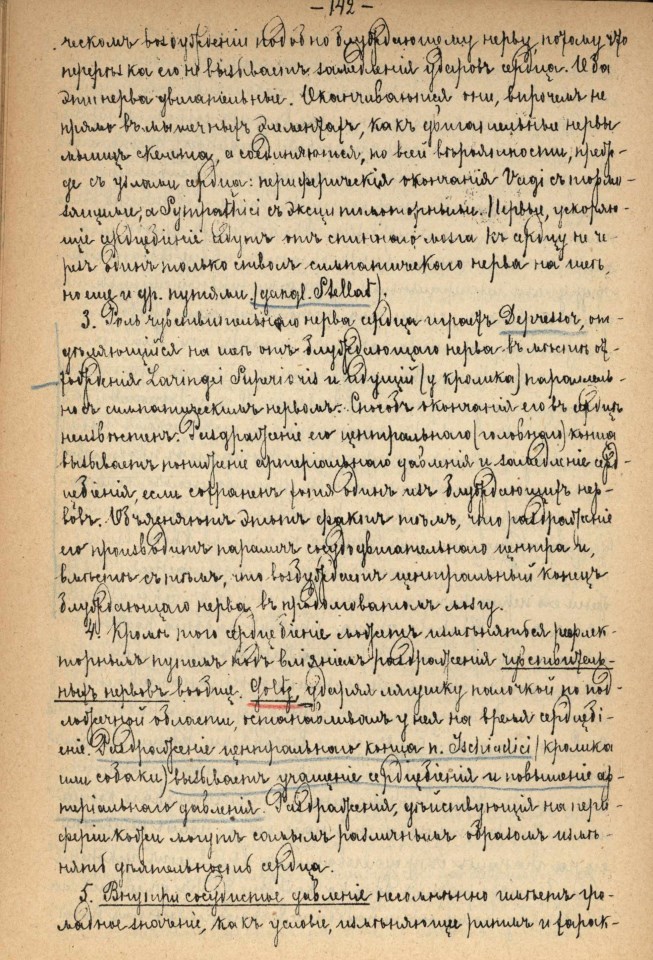 — 142 —
ческомъ возбужденіи подобно блуждающему нерву, потому что
перерѣзка его не вызываетъ замедленія ударовъ сердца. И оба
эти нерва двигательные. Оканчиваются они, впрочемъ не
прямо въ мышечныхъ элементахъ, какъ двигательные нервы
мышцъ скелета, а соединяются, по всей вѣроятности, преж-
де съ узлами сердца: периферическія окончанія Vagi съ тормо-
зящими, а Sympathici съ эксцитомоторными. Нервы, ускоряю-
щіе сердцебіеніе идутъ отъ спиннаго мозга къ сердцу не че-
резъ одинъ только стволъ симпатическаго нерва на шеѣ,
но еще и др. путями. (gangl. Stellat).
3. Роль чувствительнаго нерва сердца играетъ Depressor, от-
дѣляющійся на шеѣ отъ блуждающаго нерва въ мѣстѣ от-
хожденія Laringei Superioris и идущій (у кролика) параллель-
но съ симпатическимъ нервомъ. Способъ окончанія его въ сердцѣ
неизвѣстенъ. Раздраженіе его центральнаго (головнаго) конца
вызываетъ пониженіе артеріальнаго давленія и замедленіе серд-
цебіенія, если сохраненъ хотя одинъ изъ блуждающихъ нер-
вовъ. Объясняютъ этотъ фактъ тѣмъ, что раздраженіе
его производитъ параличъ сосудодвигательнаго центра и,
вмѣстѣ съ тѣмъ, что возбуждаетъ центральный конецъ
блуждающаго нерва въ продолговатомъ мозгу.
4. Кромѣ того сердцебіеніе можетъ измѣняться рефлек-
торнымъ путемъ подъ вліяніемъ раздраженія чувствитель-
ныхъ нервовъ вообще. Goltz, ударяя лягушку палочкой по под-
ложечной области, останавливалъ у нея на время сердцебі-
еніе. Раздраженіе центральнаго конца n. Ischiadici (кролика
или собаки) вызываетъ учащеніе сердцебіенія и повышеніе ар-
теріальнаго давленія. Раздраженія, дѣйствующія на пери-
феріи кожи могутъ самымъ различнымъ образомъ измѣ-
нять дѣятельность сердца.
5. Внутрисосудистое давленіе несомнѣнно имѣетъ гро-
мадное значеніе, какъ условіе, измѣняющее ритмъ и харак-